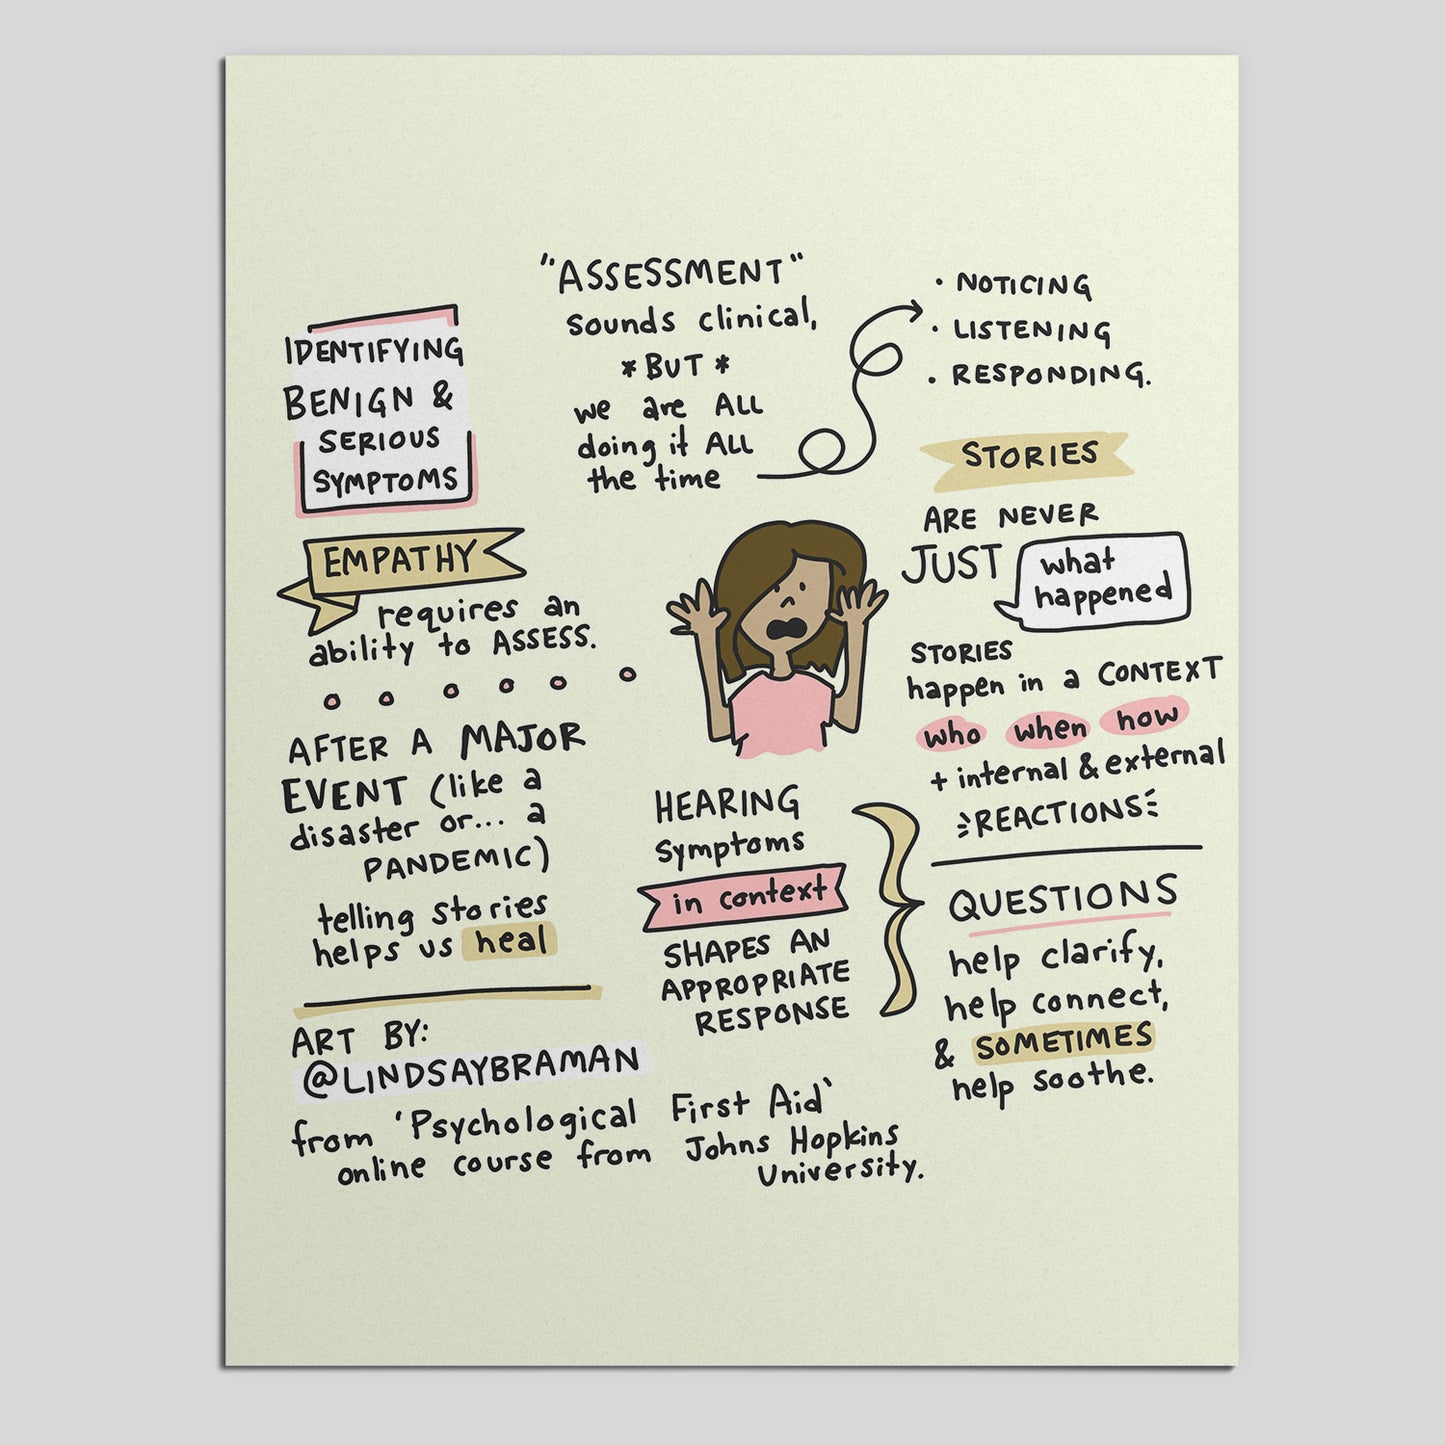 IDENTIFYING
BENIGN &
SERIOUS
SYMPTOMS
"ASSESSMENT"
sounds clinical,
*BUT*
we are ALL
doing it ALL
the time
• NOTICING
• LISTENING
• RESPONDING.
EMPATHY
requires an
ability to ASSESS.
AFTER A MAJOR
EVENT (like a
disaster or... a
PANDEMIC)
telling stories
helps us heal
STORIES
ARE NEVER
JUST what
happened
STORIES
happen in a CONTEXT
who when how
+ internal & external
REACTIONS
HEARING
symptoms
in context
SHAPES AN
APPROPRIATE
RESPONSE
QUESTIONS
help clarify,
help connect,
& SOMETIMES
help soothe.
ART BY:
@LINDSAYBRAMAN
from 'Psychological First Aid'
online course from Johns Hopkins
University.